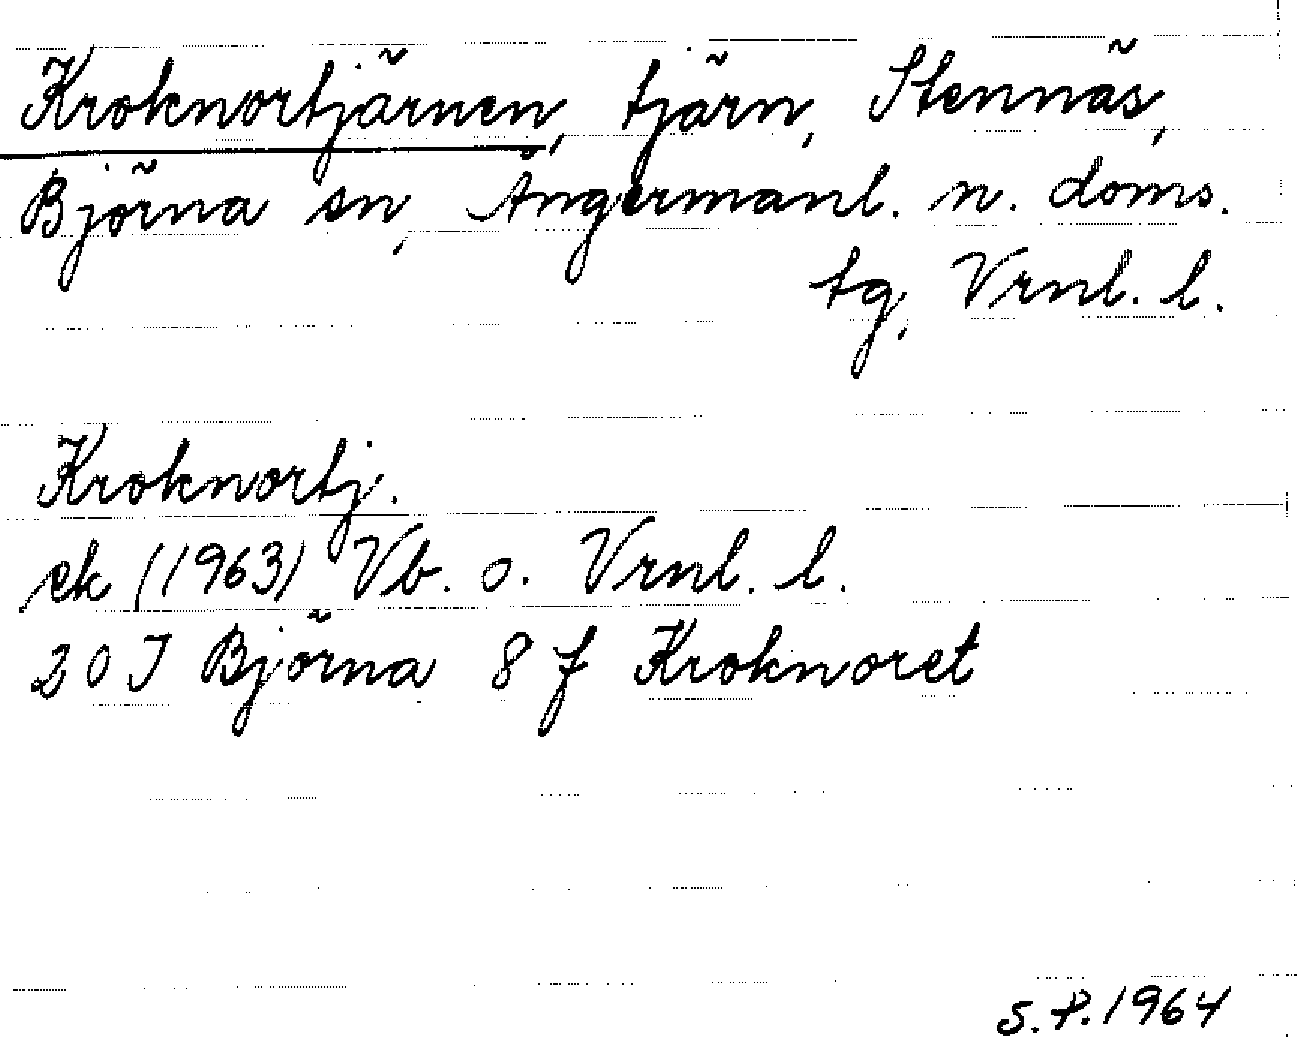 Kroknortjärnen, tjärn, Stennäs,
Björna sn, Ångermanl. n. doms.
tg, Vrnl. l.
Kroknortj.
ek (1963) Vb. o. Vrnl. l.
20 J Björna 8 f Kroknoret
S.P. 1964